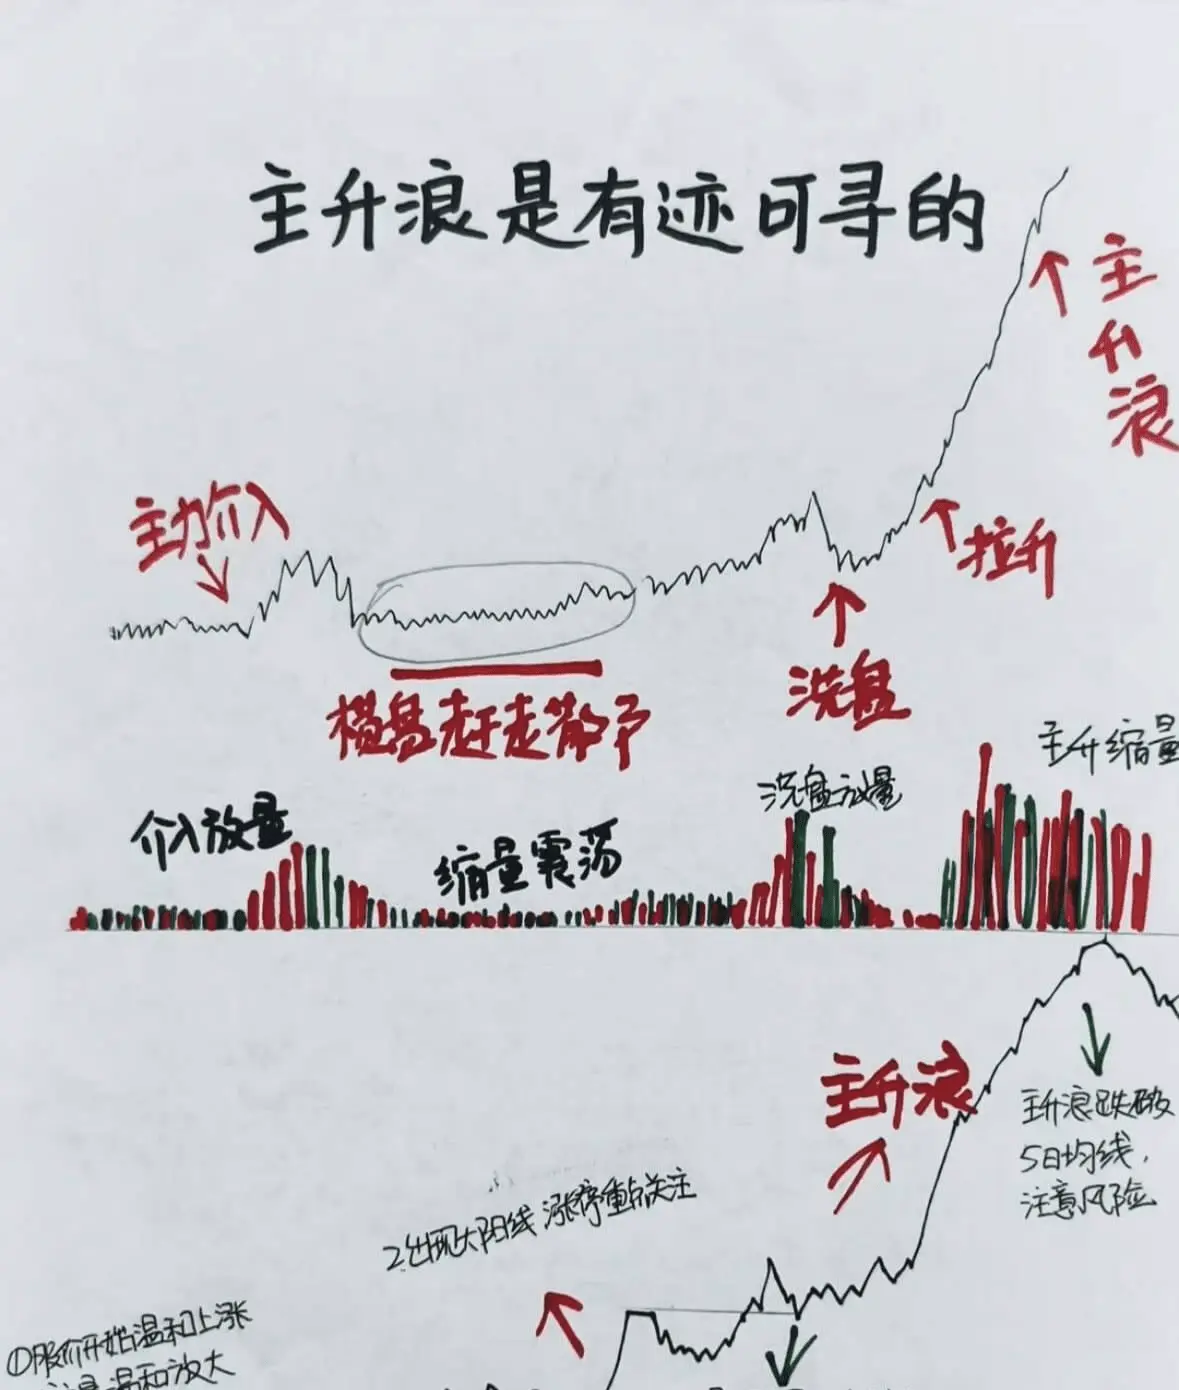 主升浪是有迹可寻的
主升浪
主力介入
拉升
洗盘
横盘赶走散户
主升缩量
洗盘放量
介入放量
缩量震荡
主升浪
主升浪跌破
5日均线,
注意风险
2.出现大阳线 涨停重点关注
①股价开始温和上涨
量温和放大